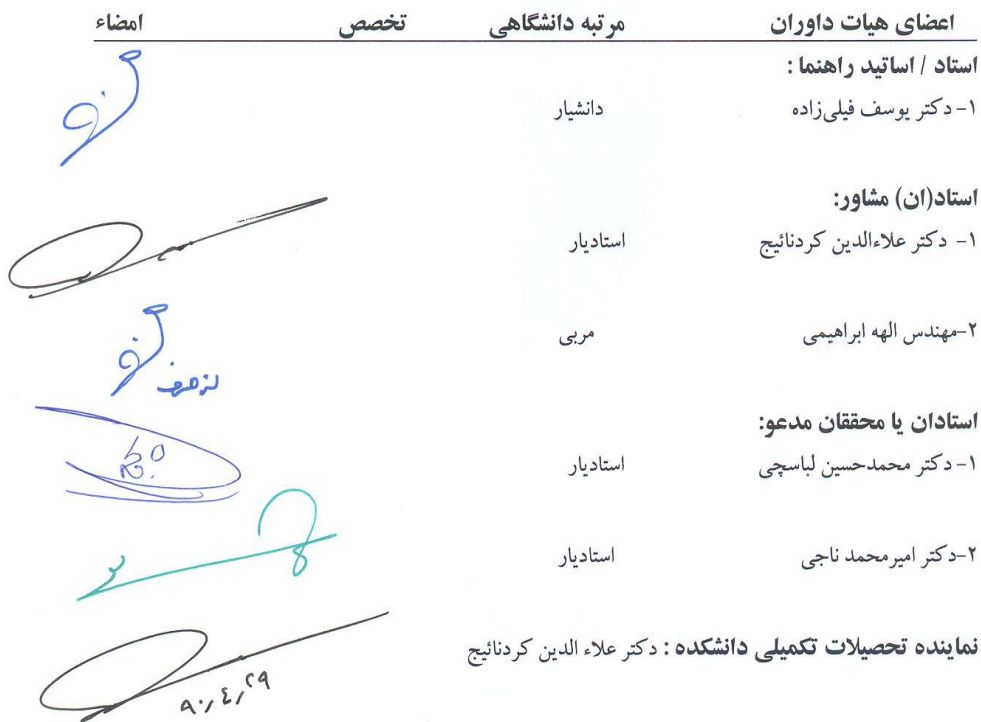 اعضای هیات داوران مرتبه دانشگاهی تخصص امضاء
استاد / اساتید راهنما :
۱- دکتر یوسف فیلی‌زاده دانشیار
استاد(ان) مشاور:
۱- دکتر علاءالدین کردنائیج استادیار
۲-مهندس الهه ابراهیمی مربی
از طرف
استادان یا محققان مدعو:
۱- دکتر محمدحسین لباسچی استادیار
۲-دکتر امیرمحمد ناجی استادیار
نماینده تحصیلات تکمیلی دانشکده : دکتر علاء الدین کردنائیج
۹۰٫۴٫۲۹